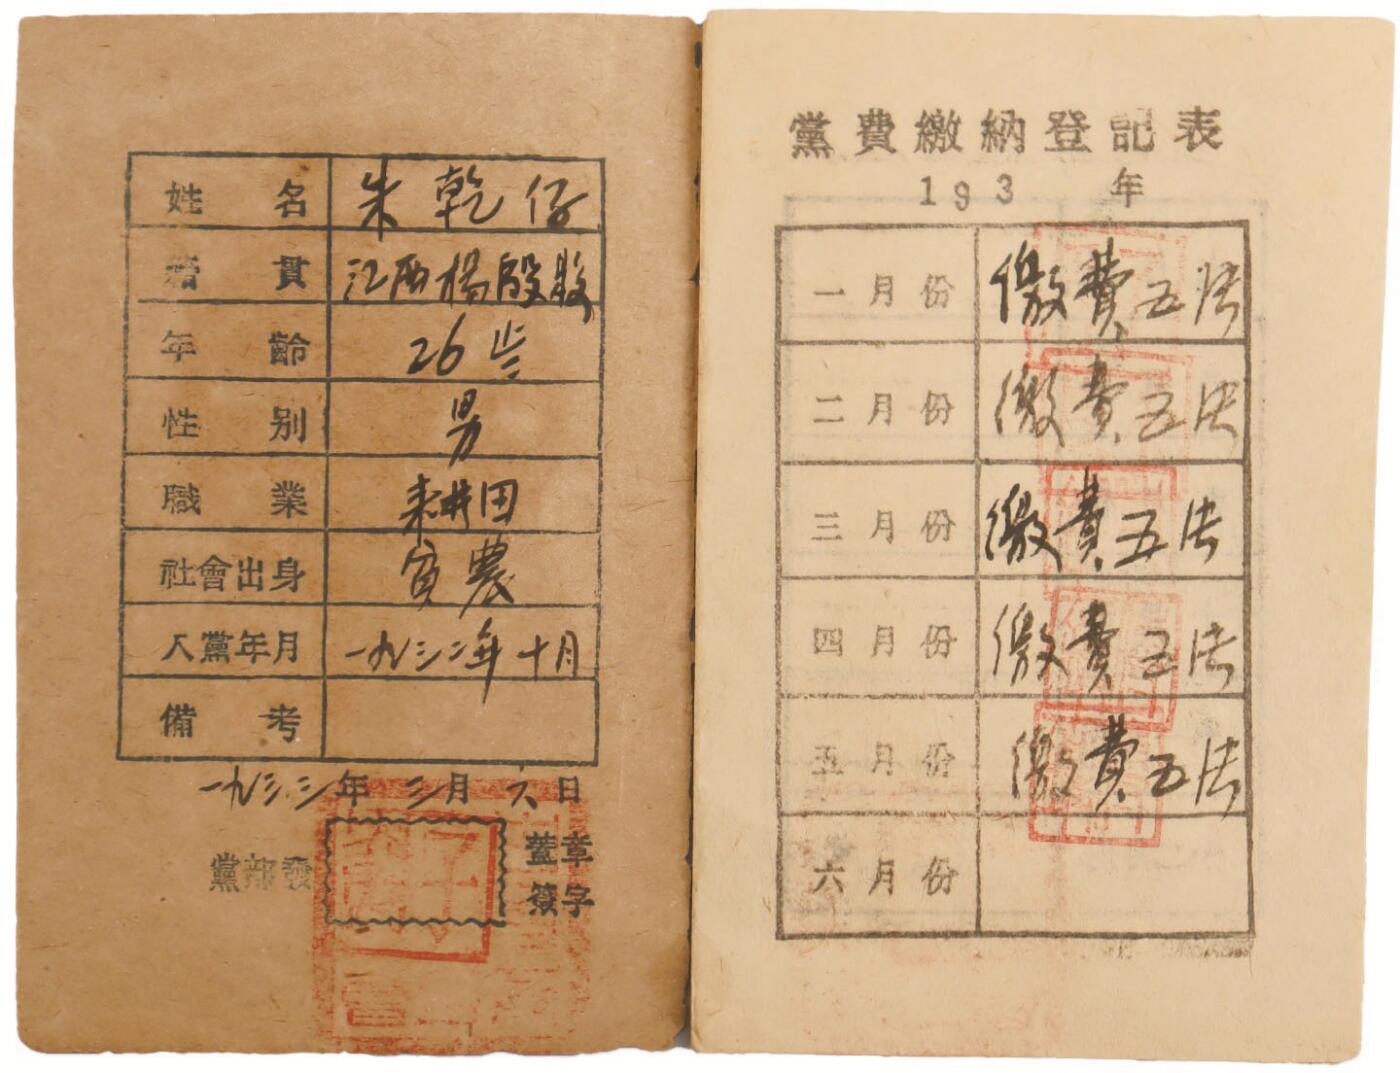 姓名 朱乾仔
籍貫 江西楊殷縣
年齡 26岁
性別 男
職業 耕田
社會出身 貧農
入黨年月 一九三二年十月
備考
一九三三年三月六日
黨部發
蓋章
簽字
黨費繳納登記表
193 年
一月份 繳費五
二月份 繳費五
三月份 繳費五
四月份 繳費五
五月份 繳費五
六月份